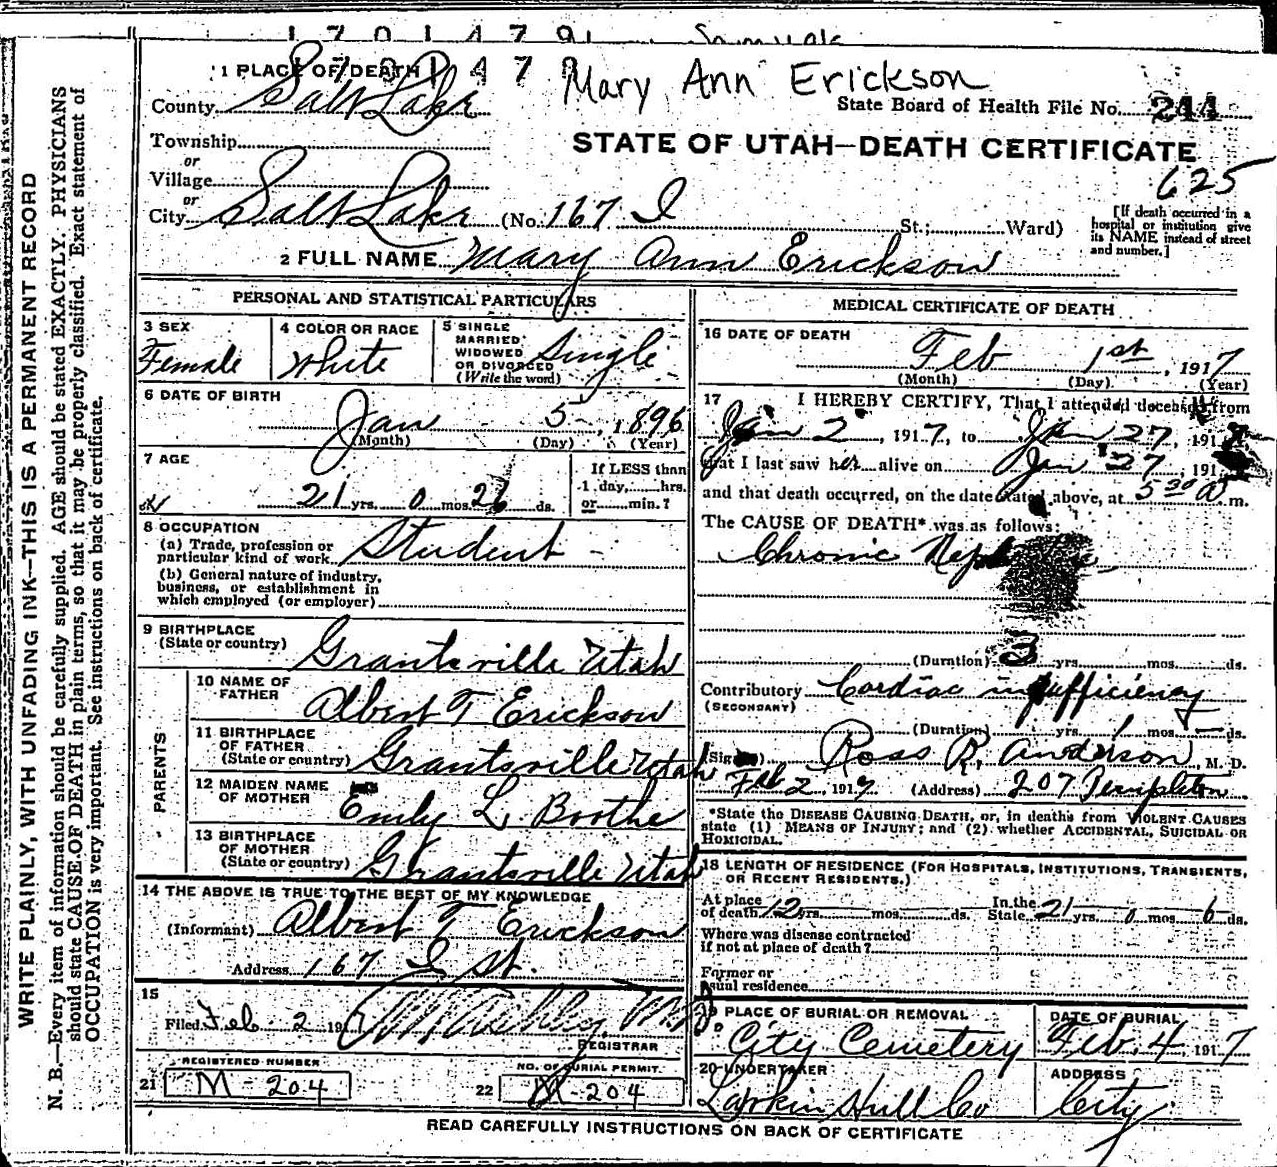 1 7 0 1 4 7 9
Mary Ann Erickson
1 PLACE OF DEATH
County Salt Lake
State Board of Health File No. 244
Township
STATE OF UTAH—DEATH CERTIFICATE
or
Village
625
or
City Salt Lake (No. 167 I St.; Ward)
[If death occurred in a
hospital or institution give
its NAME instead of street
and number.]
2 FULL NAME Mary Ann Erickson
PERSONAL AND STATISTICAL PARTICULARS
3 SEX
Female
4 COLOR OR RACE
White
5 SINGLE
MARRIED
WIDOWED
OR DIVORCED
(Write the word)
Single
6 DATE OF BIRTH
Jan 5, 1896
(Month) (Day) (Year)
7 AGE
21 yrs. 0 mos. 26 ds.
If LESS than
1 day, hrs.
or min.?
8 OCCUPATION
(a) Trade, profession or
particular kind of work Student
(b) General nature of industry,
business, or establishment in
which employed (or employer)
9 BIRTHPLACE
(State or country) Grantsville Utah
PARENTS
10 NAME OF
FATHER
Albert T Erickson
11 BIRTHPLACE
OF FATHER
(State or country) Grantsville Utah
12 MAIDEN NAME
OF MOTHER
Emily L Boothe
13 BIRTHPLACE
OF MOTHER
(State or country) Grantsville Utah
14 THE ABOVE IS TRUE TO THE BEST OF MY KNOWLEDGE
(Informant) Albert T Erickson
Address 167 I St.
15
Filed Feb 2 1917
REGISTRAR
REGISTERED NUMBER
21 M-204
NO. OF BURIAL PERMIT.
22 M-204
MEDICAL CERTIFICATE OF DEATH
16 DATE OF DEATH
Feb 1st, 1917
(Month) (Day) (Year)
17 I HEREBY CERTIFY, That I attended deceased from
Jan 2, 1917, to Jan 27, 191
that I last saw her alive on Jan 27, 191
and that death occurred, on the date stated above, at 5 30 A m.
The CAUSE OF DEATH* was as follows:
Chronic
(Duration) 3 yrs. mos. ds.
Contributory Cardiac insufficiency
(SECONDARY)
(Duration) yrs. 1 mos. — ds.
(Signed) Ross R. Anderson, M. D.
Feb 2, 1917 (Address) 207 Templeton
*State the DISEASE CAUSING DEATH, or, in deaths from VIOLENT CAUSES
state (1) MEANS OF INJURY; and (2) whether ACCIDENTAL, SUICIDAL OR
HOMICIDAL.
18 LENGTH OF RESIDENCE (FOR HOSPITALS, INSTITUTIONS, TRANSIENTS,
OR RECENT RESIDENTS.)
At place
of death 12 yrs. mos. ds.
In the
State 21 yrs. 0 mos. 6 ds.
Where was disease contracted
if not at place of death?
Former or
usual residence
19 PLACE OF BURIAL OR REMOVAL
City Cemetery
DATE OF BURIAL
Feb. 4, 1917
20 UNDERTAKER
Larkin Hull Co
ADDRESS
City
READ CAREFULLY INSTRUCTIONS ON BACK OF CERTIFICATE
WRITE PLAINLY, WITH UNFADING INK—THIS IS A PERMANENT RECORD
N. B.—Every item of information should be carefully supplied. AGE should be stated EXACTLY. PHYSICIANS
should state CAUSE OF DEATH in plain terms, so that it may be properly classified. Exact statement of
OCCUPATION is very important. See instructions on back of certificate.